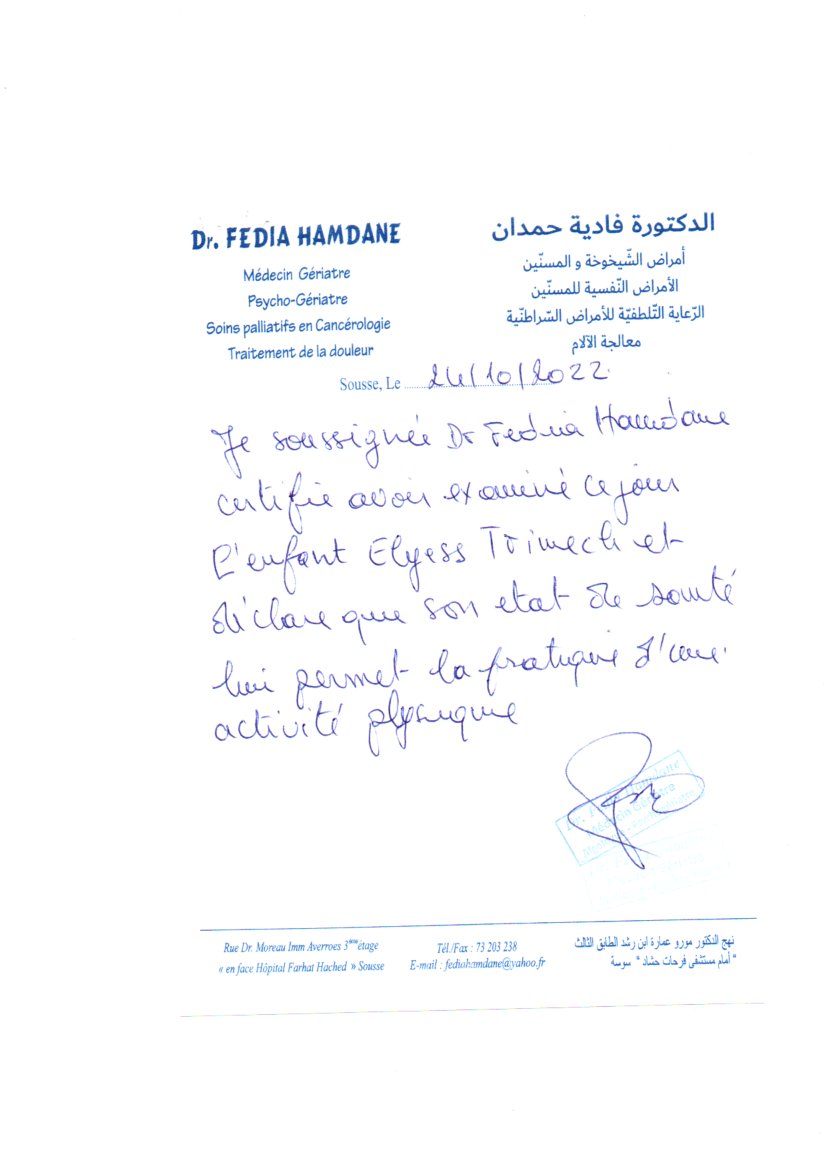 Dr. FEDIA HAMDANE
Médecin Gériatre
Psycho-Gériatre
Soins palliatifs en Cancérologie
Traitement de la douleur
الدكتورة فادية حمدان
أمراض الشّيخوخة و المسنّين
الأمراض النّفسية للمسنّين
الرّعاية التّلطفيّة للأمراض السّراطنّية
معالجة الآلام
Sousse, Le 24/10/2022
Je soussignée Dr Fedia Hamdane
certifie avoir examiné ce jour
l'enfant Elyess Trimech et
déclare que son etat de santé
lui permet la pratique d'une
activité physique
Rue Dr. Moreau Imm Averroes 3ème étage
« en face Hôpital Farhat Hached » Sousse
Tél./Fax : 73 203 238
E-mail : fediahamdane@yahoo.fr
نهج الدكتور مورو عمارة ابن رشد الطابق الثالث
" أمام مستشفى فرحات حشاد " سوسة